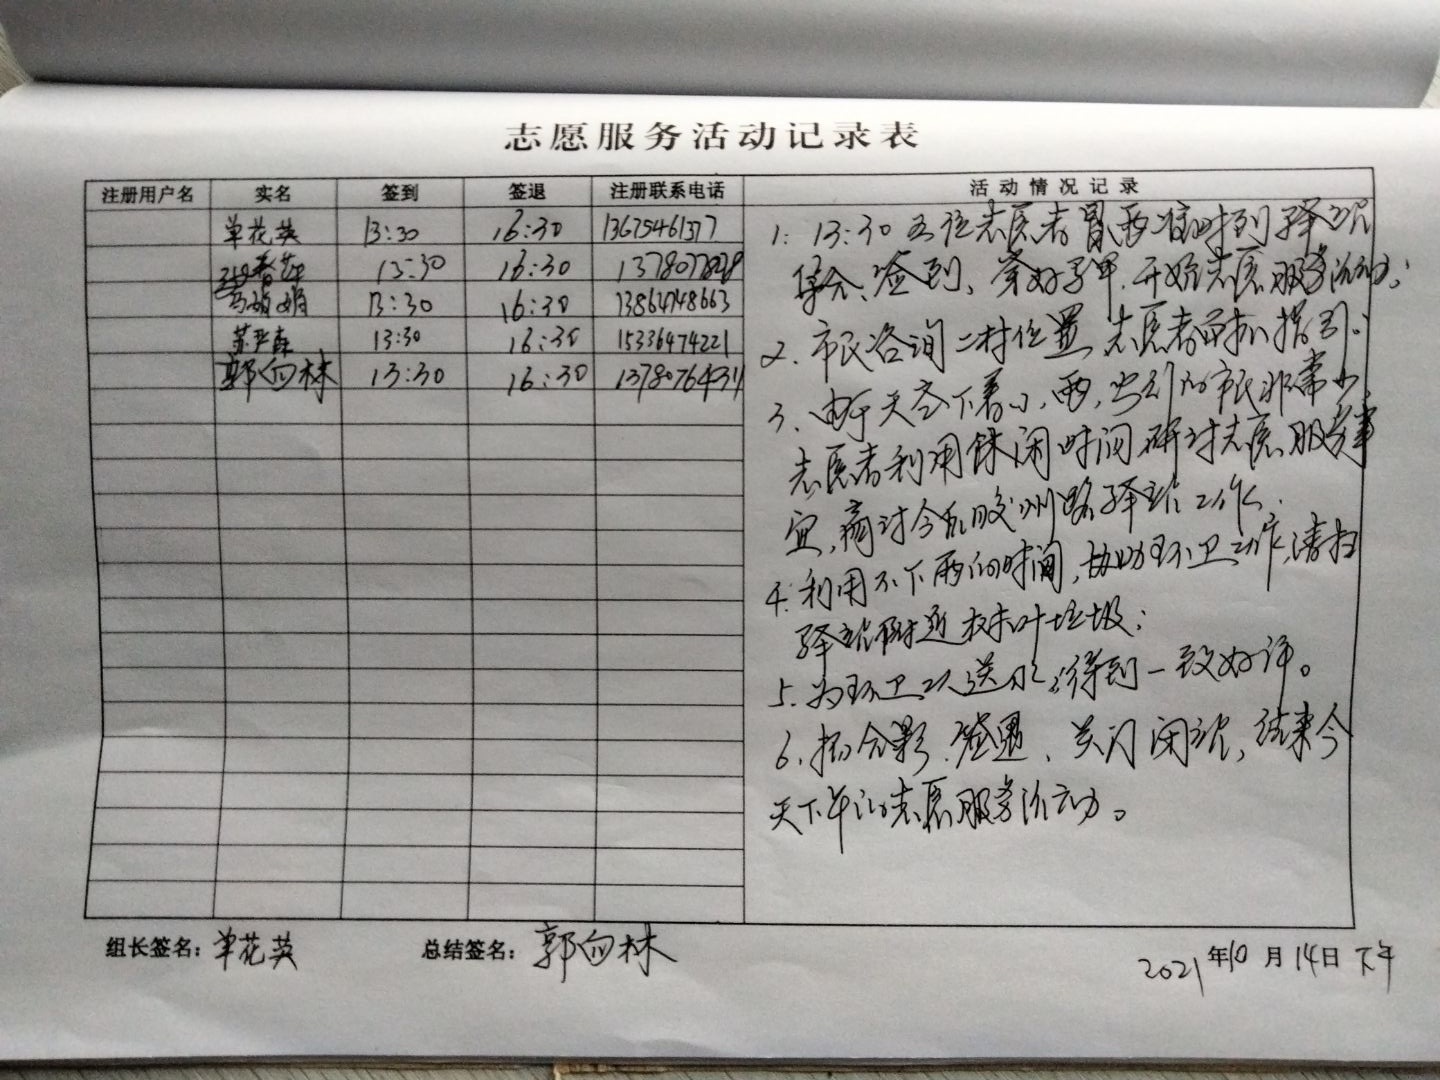 志愿服务活动记录表
注册用户名 实名 签到 签退 注册联系电话 活动情况记录
单花英 13:30 16:30 13675461377
春 13:30 16:30
娟 13:30 16:30 13864748663
苏 13:30 16:30 15336474221
郭向林 13:30 16:30 13780764311
1. 13:30 五位志愿者冒雨准时到驿站
集合、签到,穿好马甲,开始志愿服务活动;
2. 市民咨询二村位置,志愿者帮忙指引;
3. 由于天空下着小雨,出行的市民非常少,
志愿者利用休闲时间研讨志愿服务事
宜,商讨今后胶州路驿站工作.
4. 利用不下雨的时间,协助环卫工作,清扫
驿站附近树叶垃圾;
5. 为环卫工送水,得到一致好评。
6. 拍合影、签退、关门闭站,结束今
天下午的志愿服务活动。
组长签名:单花英 总结签名:郭向林
2021年10月14日 下午